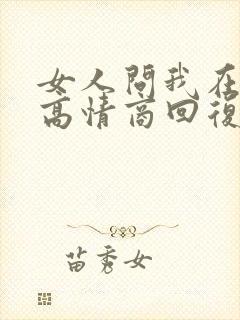 女人問我在
高情商回復
苗秀女